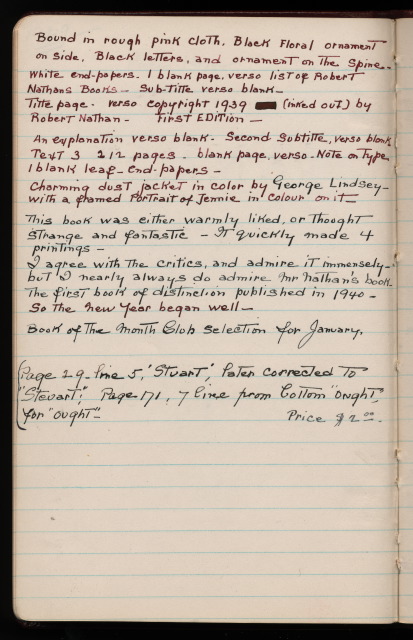 Bound in rough pink cloth, Black Floral ornament
on side, Black letters, and ornament on the Spine-
White end-papers. 1 blank page, verso list of Robert
Nathans Books - Sub-Title verso blank-
Title page - verso copyright 1939 (inked out) by
Robert Nathan - First EDITION-
An explanation verso blank. Second Subtitle, verso blank
Text 3 212 pages - blank page, verso - Note on Type
1 blank leaf - End-papers-
Charming dust jacket in color by George Lindsey-
with a framed Portrait of Jennie in colour on it-
This book was either warmly liked, or thought
strange and fantastic - It quickly made 4
printings-
I agree with the critics, and admire it immensely-
but I nearly always do admire Mr Nathan's book.
The first book of distinction published in 1940-
So the New Year began well-
Book of the Month Club selection for January.
(Page 29 - line 5, "Stuart", later corrected to
"Stewart". Page 171, 7 line from bottom "ought",
for "ought"-
Price $2.00-